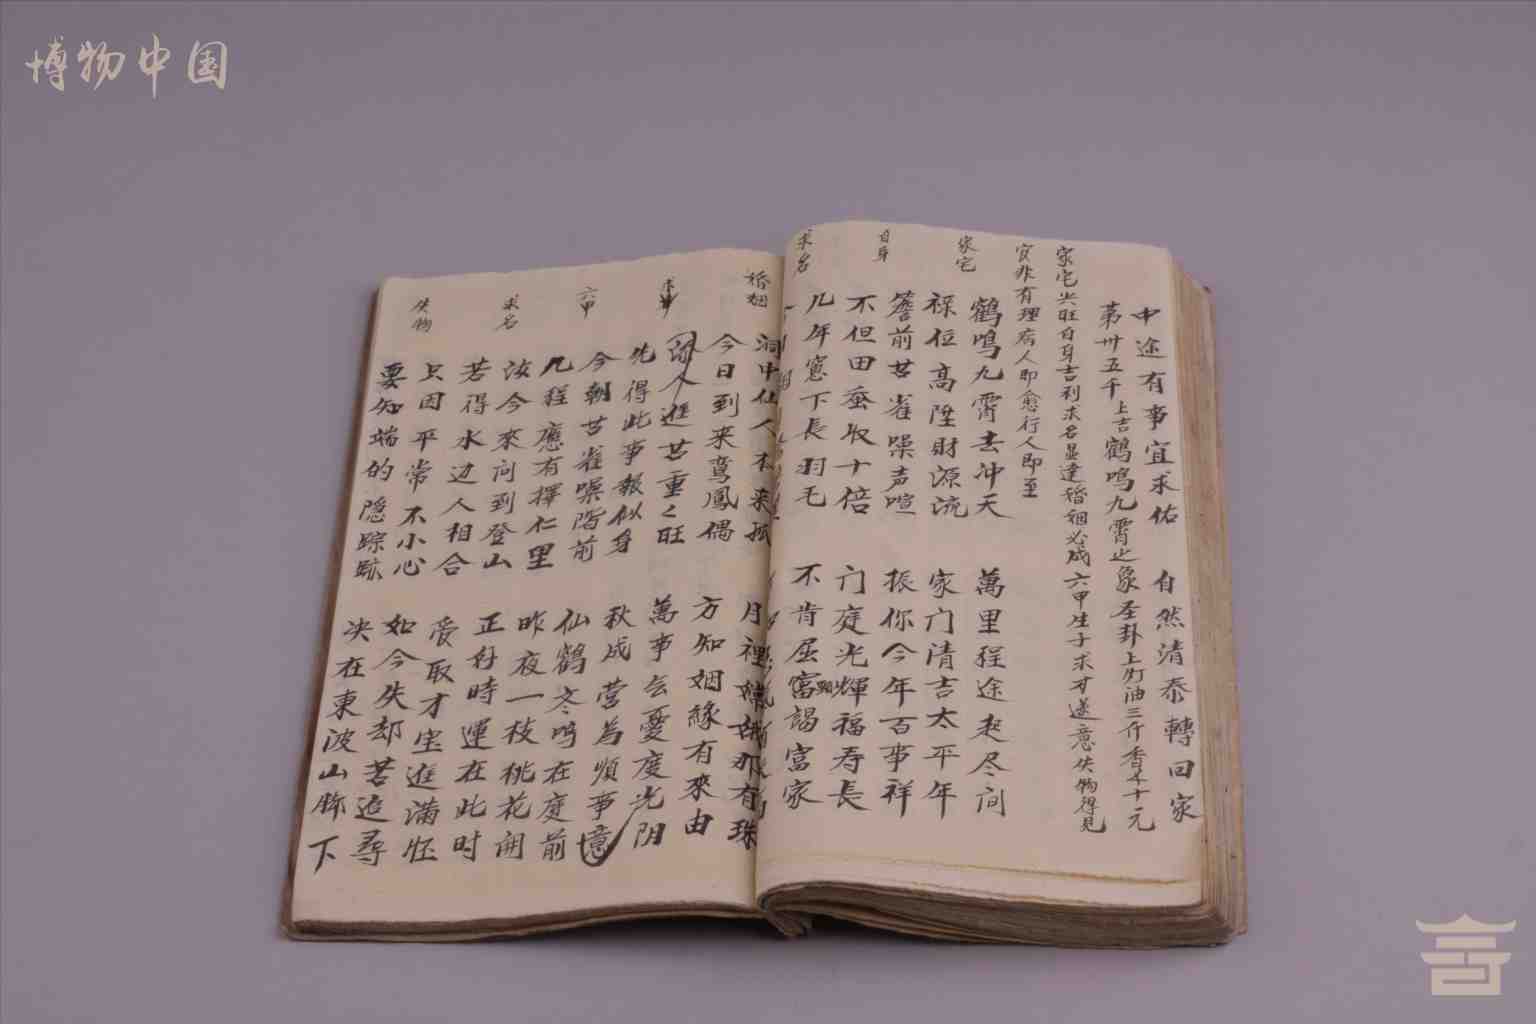 博物中国
中途有事宜求佑 自然清泰轉回家
第卅五千 上吉 鶴鳴九霄之象 圣卦上灯油三斤香 十元
家宅兴旺自身吉利求名显達婚姻必成六甲生子求才遂意失物得見
官非有理病人即愈行人即至
家宅 鶴鳴九霄去冲天 萬里程途赴尽间
禄位高陞財源流 家门清吉太平年
自身 簷前苦雀噪声喧 振你今年百事祥
不但田蚕收十倍 门庭光輝福寿長
求名 几年窻下長羽毛 不肯屈 謁富家
婚姻 洞中仙人本来孤 月裡嫦娥那有珠
今日到来鸾鳳偶 方知姻緣有來由
求 人進苦重々旺 萬事 憂度光阴
先得此事報似身 秋成营為順事意
六甲 今朝苦雀噪階前 仙鶴 鸣在庭前
几程應有擇仁里 昨夜一枝桃花開
求名 汝今來问到登山 正好時運在此时
若得水边人相合 受取才宝進满怀
失物 只因平常不小心 如今失却苦追尋
要知端的隠踪跡 决在東波山脚下